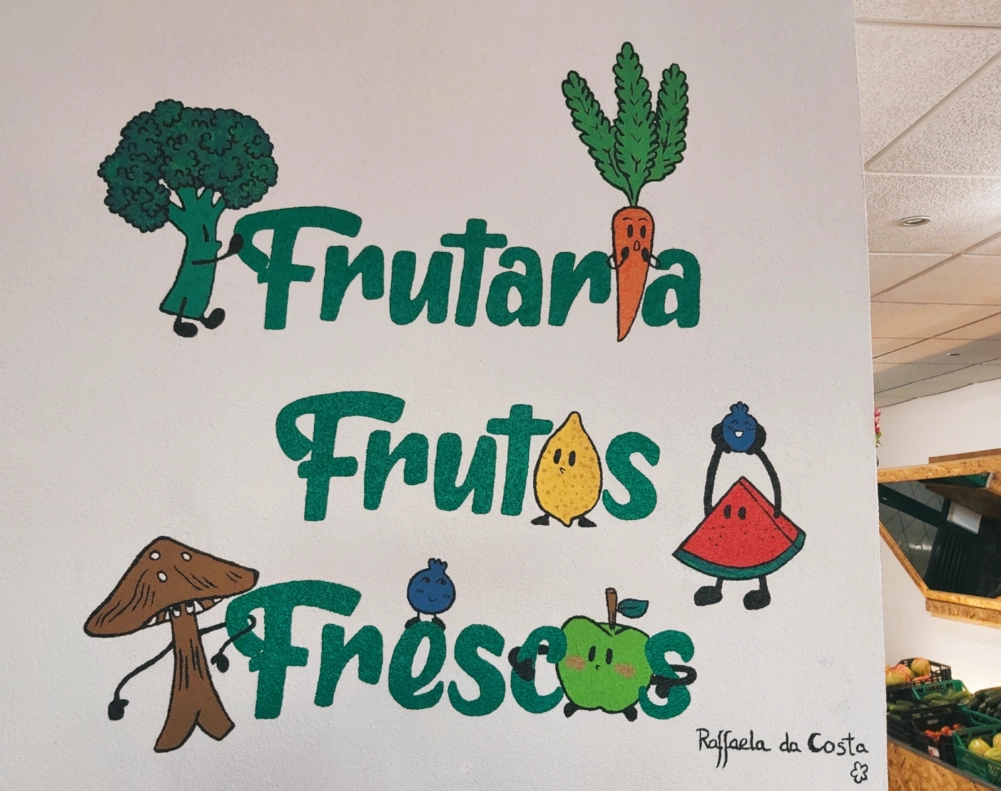 Frutaria
Frutos
Frescos
Raffaela da Costa